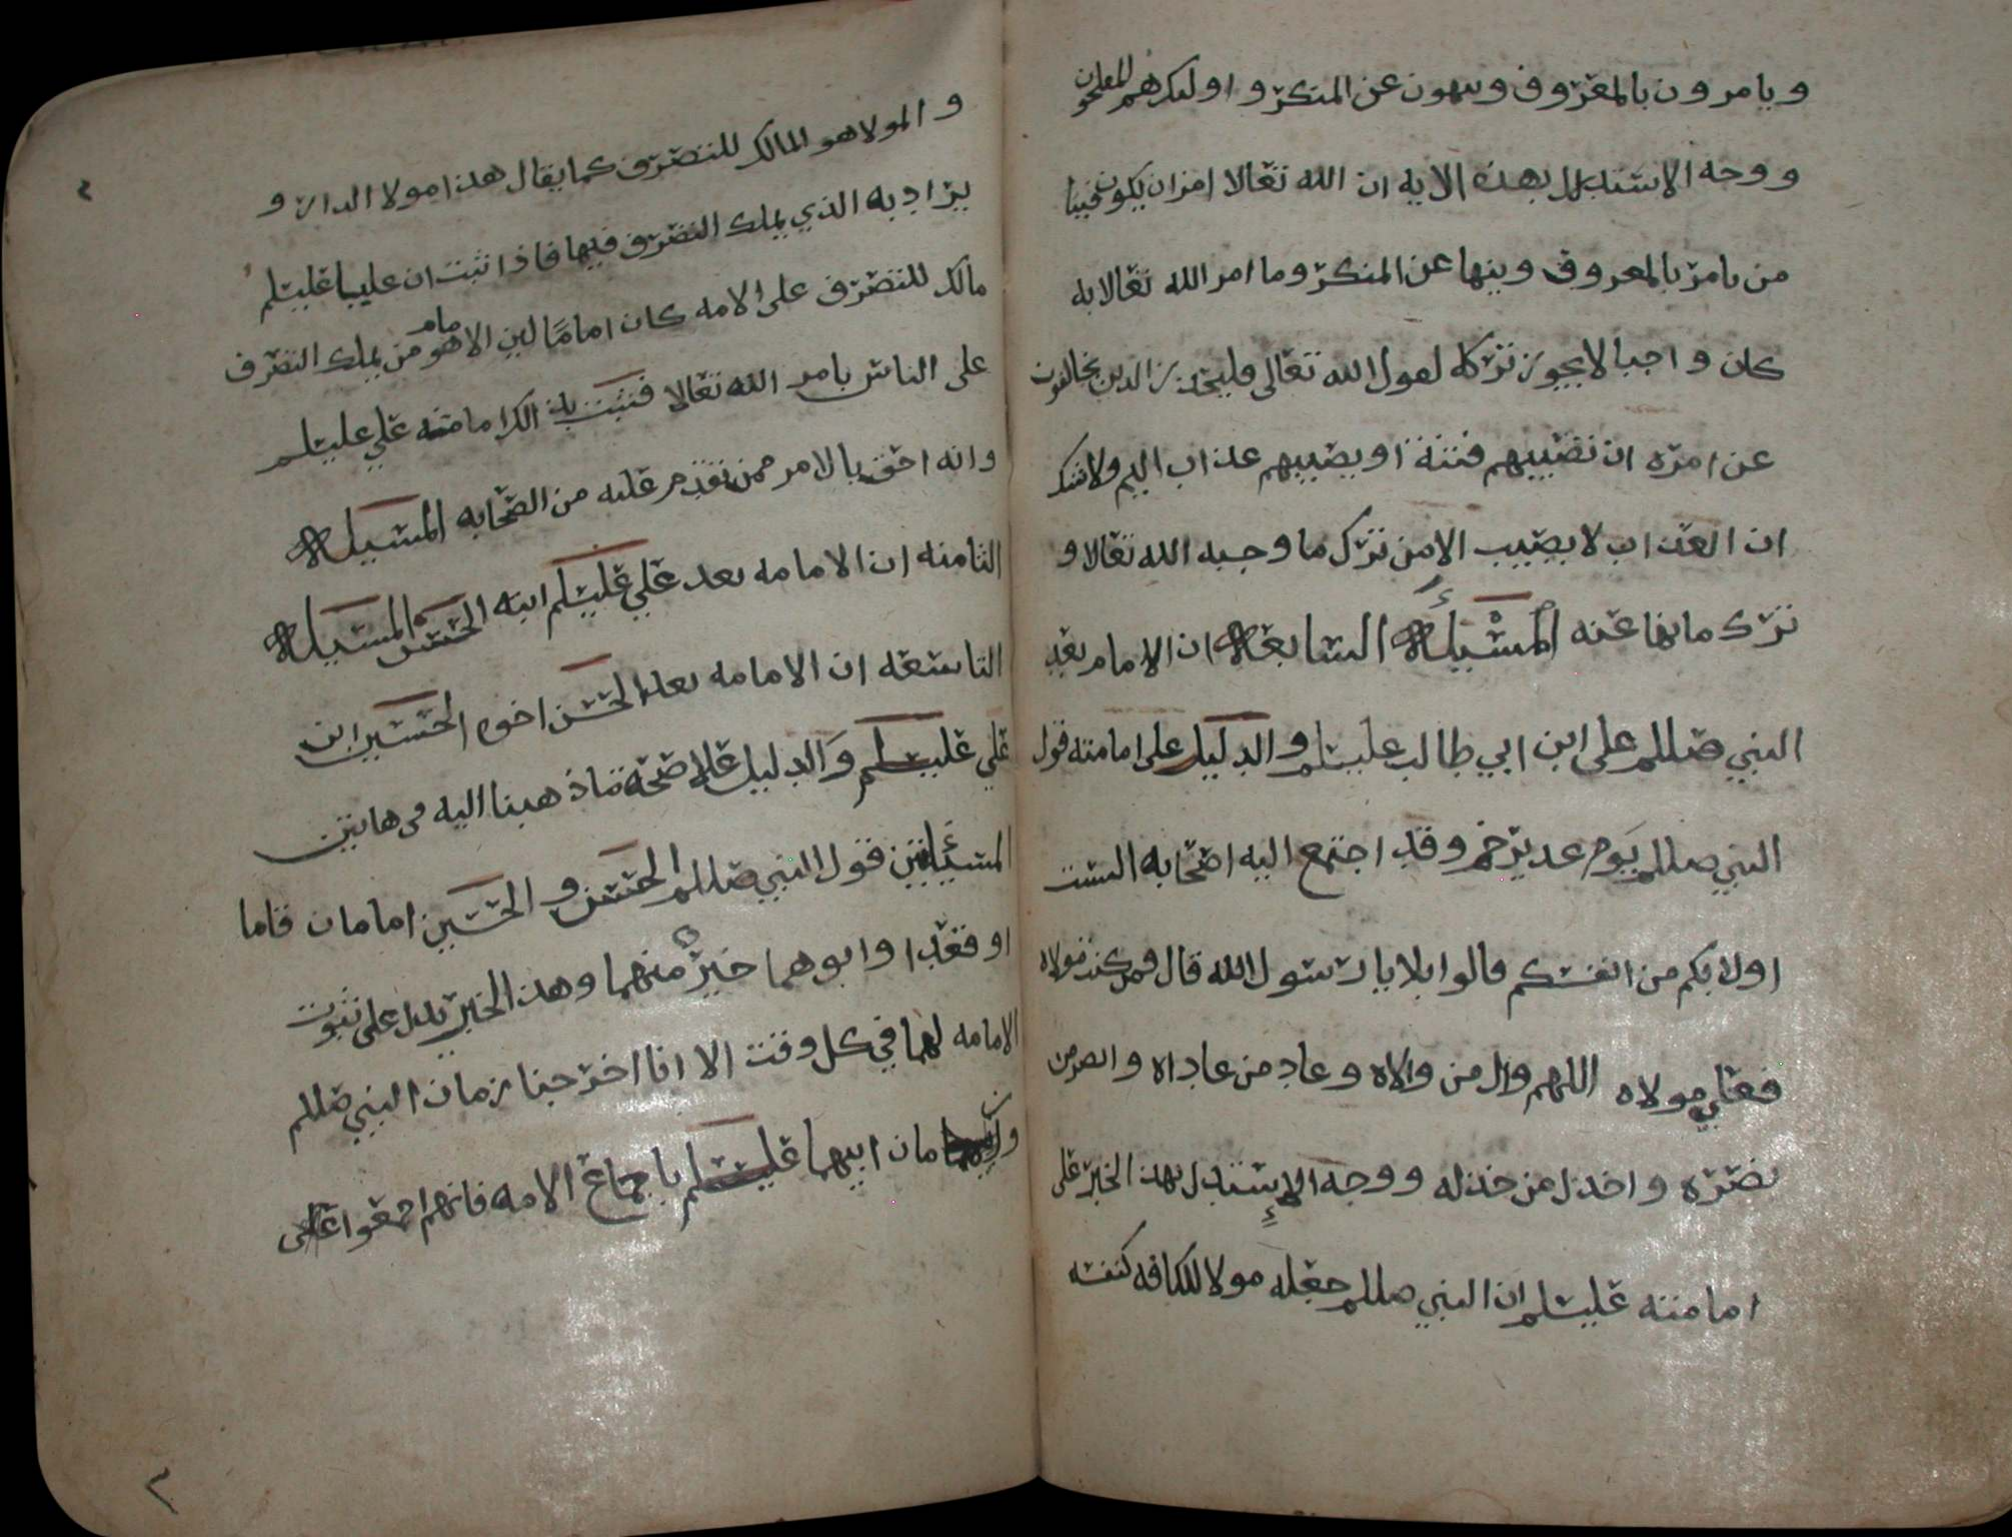 ويامرون بالمعروف وينهون عن المنكر واوليك هم المفلحون
ووجه الاستدلال بهذه الايه ان الله تعالا امر ان يكون فينا
من يامر بالمعروف وينها عن المنكر وما امر الله تعالا به
كان واجبا لا يجوز تركه لقول الله تعالى فليحذر الذين يخالفون
عن امره ان تصيبهم فتنة او يصيبهم عذاب اليم ولا شك
ان العذاب لا يصيب الا من ترك ما وجبه الله تعالا و
ترك ما نها عنه المسئلة السابعة ان الامام بعد
النبي صللم علي ابن ابي طالب عليسلم والدليل على امامته قول
النبي صللم يوم غدير خم وقد اجتمع اليه اصحابه الست
اولا بكم من انفسكم قالوا بلا يا رسول الله قال فمن كنت مولاه
فعلي مولاه اللهم وال من والاه وعاد من عاداه وانصر من
نصره واخذل من خذله ووجه الاستدل بهذ الخبر على
امامته عليسلم ان النبي صللم جعله مولا للكافه كنفسه
والمولا هو المالك للتصرف كما يقال هذا مولا الدار و
يراد به الذي يملك التصرف فيها فاذا ثبت ان عليا عليسلم
مالك للتصرف على الامه كان اماما لان الامام هو من يملك التصرف
على الناس بامر الله تعالا فثبت بذلك امامته علي عليسلم
وانه احق بالامر ممن تقدم عليه من الصحابه المسيلة
الثامنه ان الامامه بعد علي عليسلم ابنه الحسن المسيلة
التاسعه ان الامامه بعد الحسن اخوه الحسين ابن
علي عليسلم والدليل على صحة ما ذهبنا اليه في هاتين
المسئلتين قول النبي صللم الحسن والحسين امامان قاما
او قعدا وابوهما خير منهما وهذ الخبر يدل على ثبوت
الامامه لهما في كل وقت الا انا اخرجنا زمان النبي صللم
وزمان ابيهما عليسلم باجماع الامه فانهم اجمعوا على
٢
٣